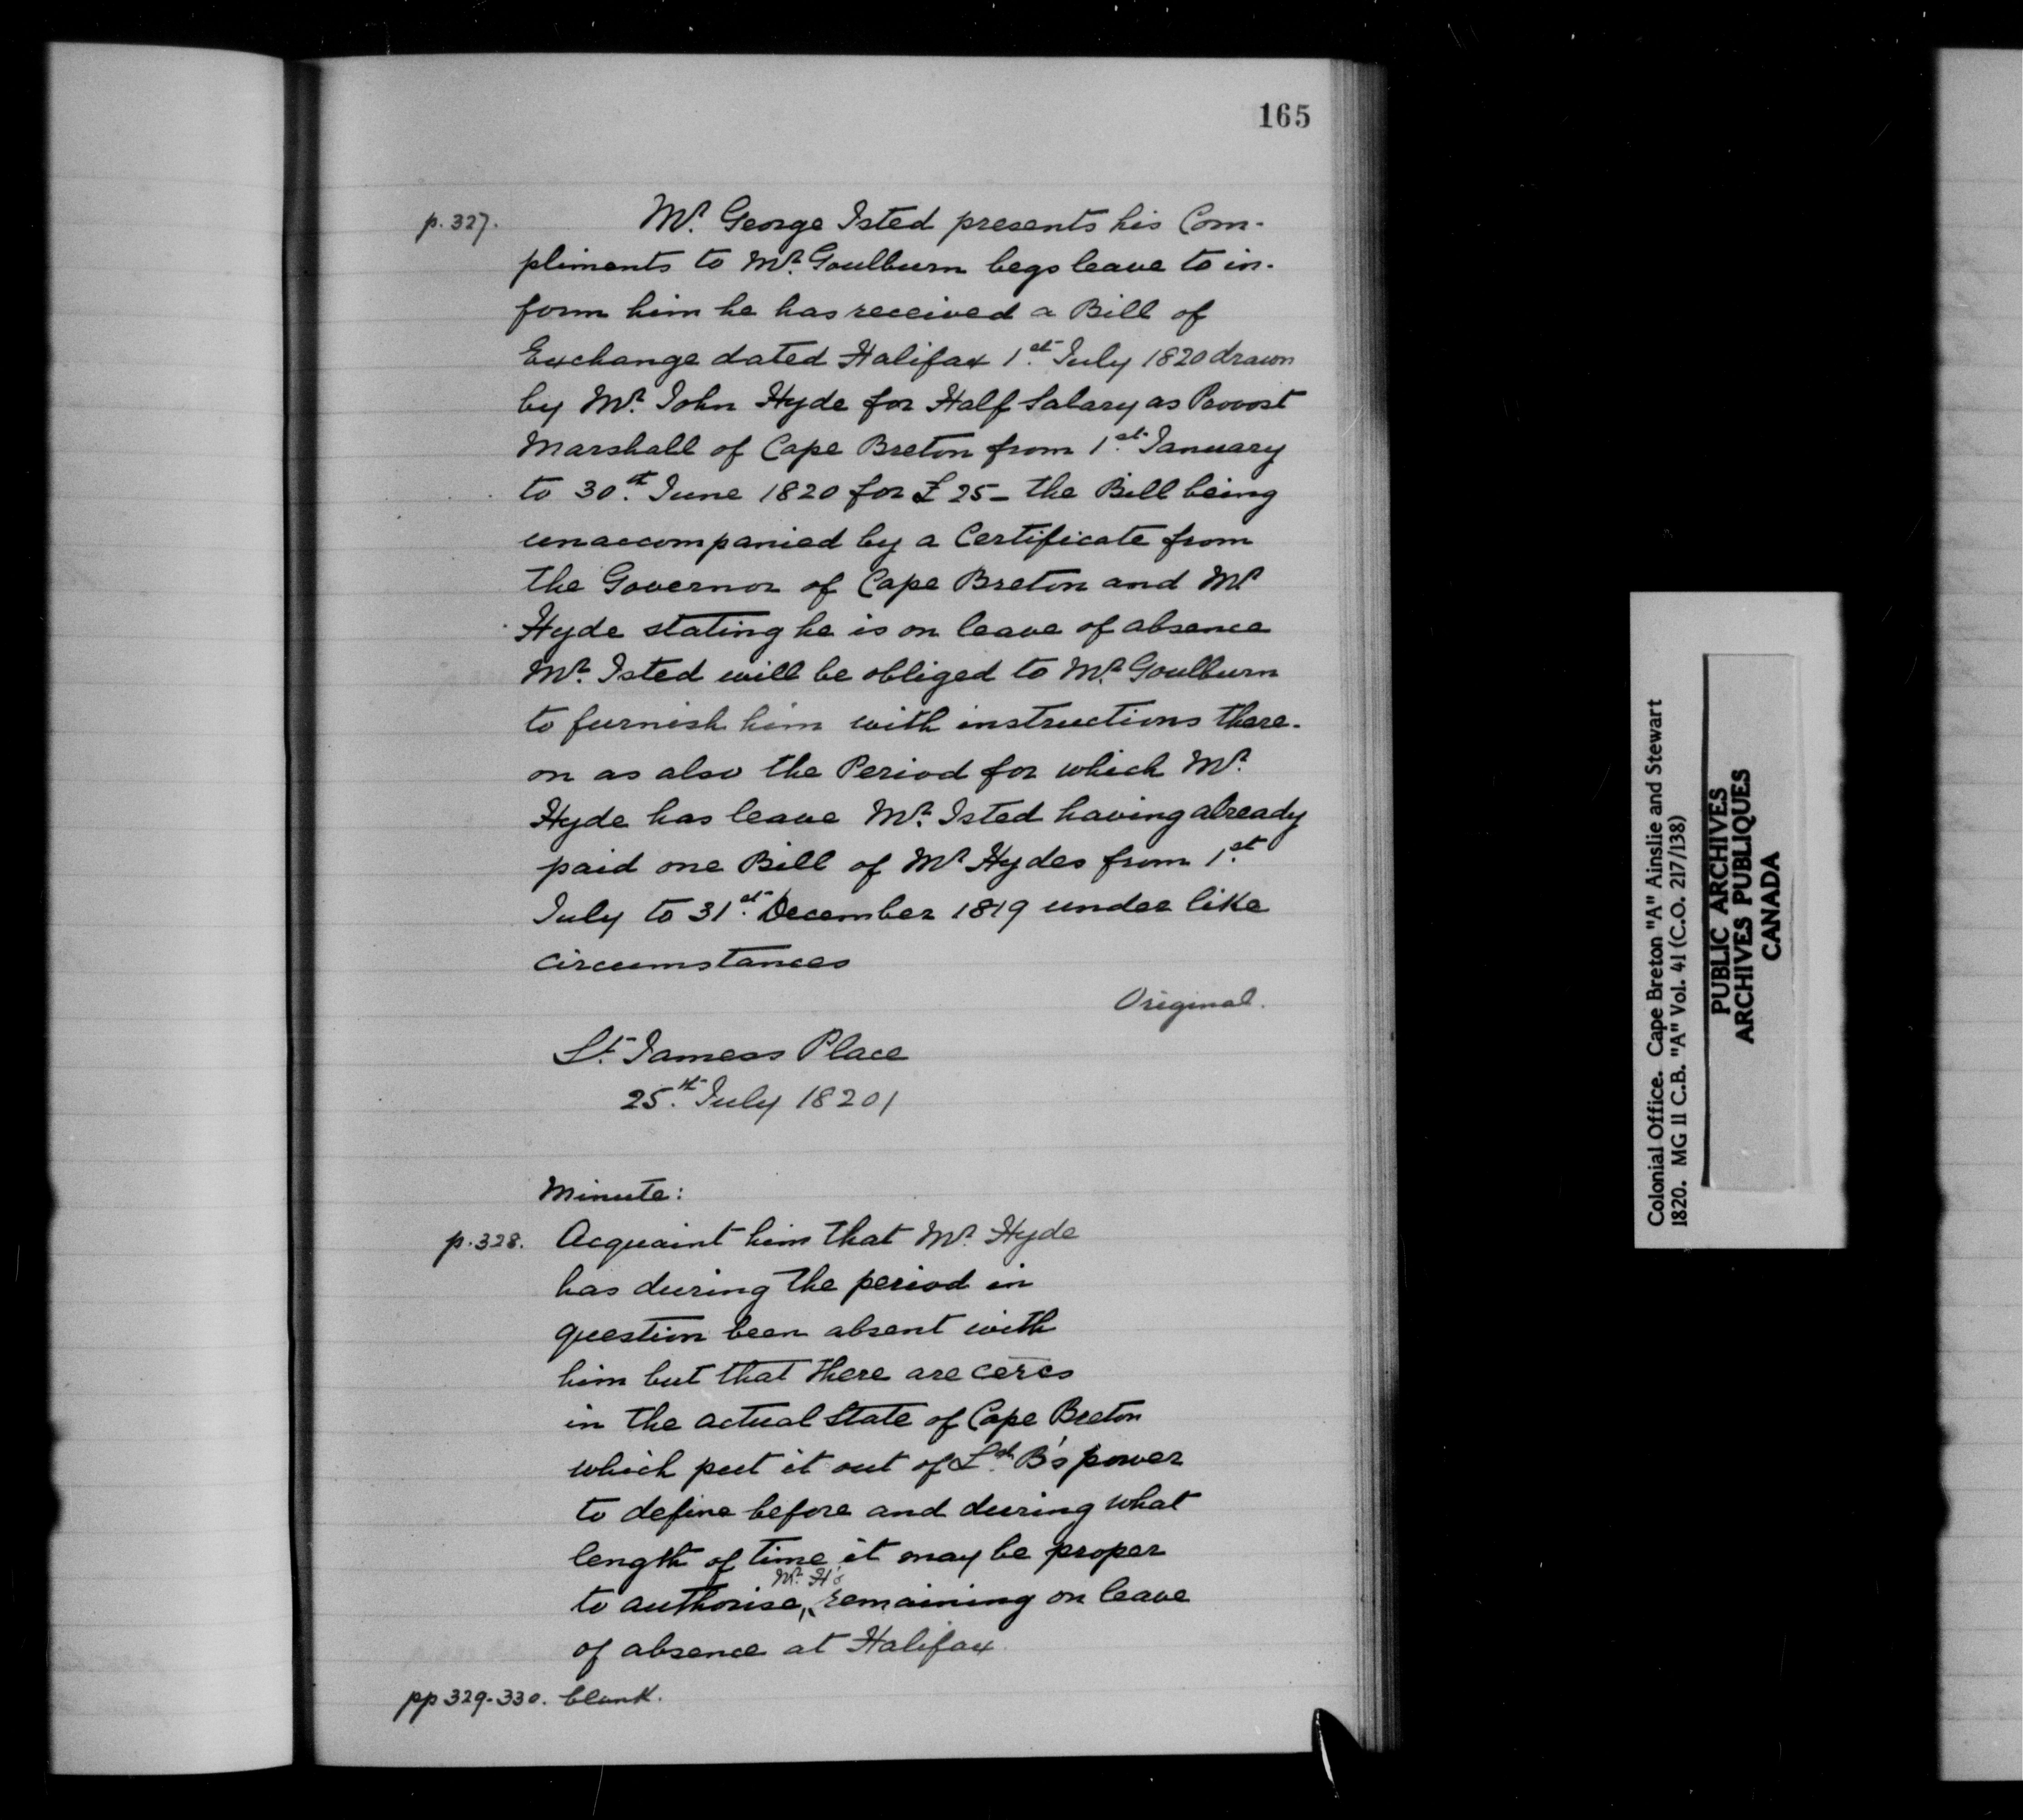 165
p. 327. Mr. George Isted presents his Com-
pliments to Mr. Goulburn begs leave to in-
form him he has received a Bill of
Exchange dated Halifax 1st. July 1820 drawn
by Mr. John Hyde for Half Salary as Provost
Marshall of Cape Breton from 1st. January
to 30th. June 1820 for £25 - the Bill being
unaccompanied by a Certificate from
the Governor of Cape Breton and Mr
Hyde stating he is on leave of absence
Mr. Isted will be obliged to Mr. Goulburn
to furnish him with instructions there-
on as also the Period for which Mr.
Hyde has leave Mr. Isted having already
paid one Bill of Mr Hydes from 1st.
July to 31st. December 1819 under like
circumstances
Original.
St. Jamess Place
25th. July 1820/
Minute:
p. 328. Acquaint him that Mr. Hyde
has during the period in
question been absent with
him but that there are cercs
in the actual State of Cape Breton
which put it out of Ld. B's power
to define before and during what
length of time it may be proper
to authorise, Mr. H's remaining on leave
of absence at Halifax.
pp 329-330. blank.
Colonial Office. Cape Breton "A" Ainslie and Stewart
1820. MG 11 C.B. "A" Vol. 41 (C.O. 217/138)
PUBLIC ARCHIVES
ARCHIVES PUBLIQUES
CANADA